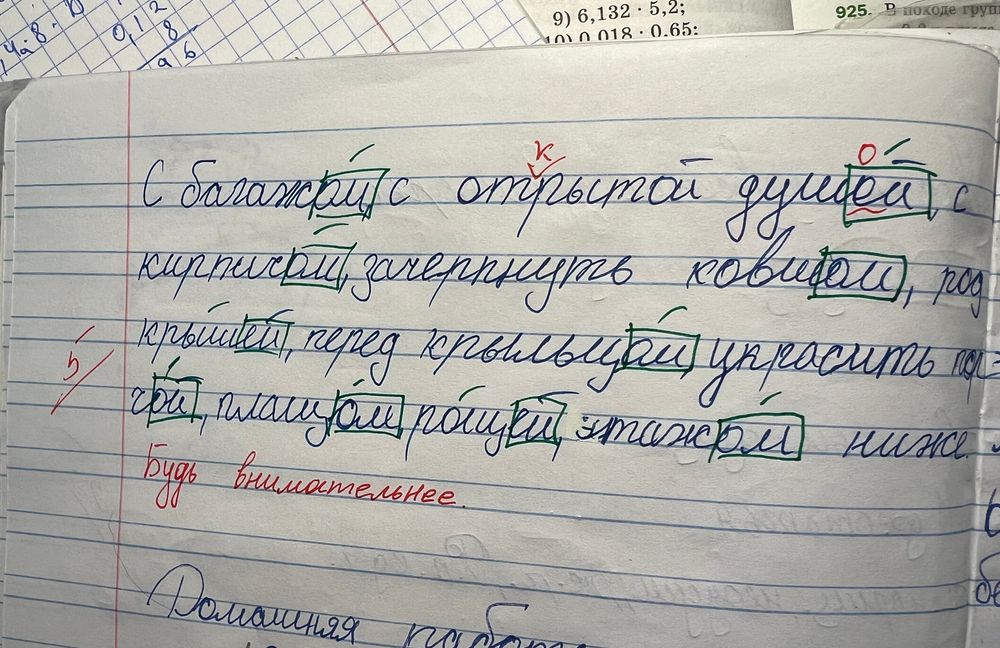 9) 6,132 · 5,2;
10) 0,018 · 0,65;
925. В походе груп
0,12
8
к о
С багажом, с отрытой душей, с
кирпичом, зачерпнуть ковшом, под
крышей, перед крыльцом, украсить пар-
5/
чой, плащом, рощей, этажом ниже.
Будь внимательнее.
Домашняя работа